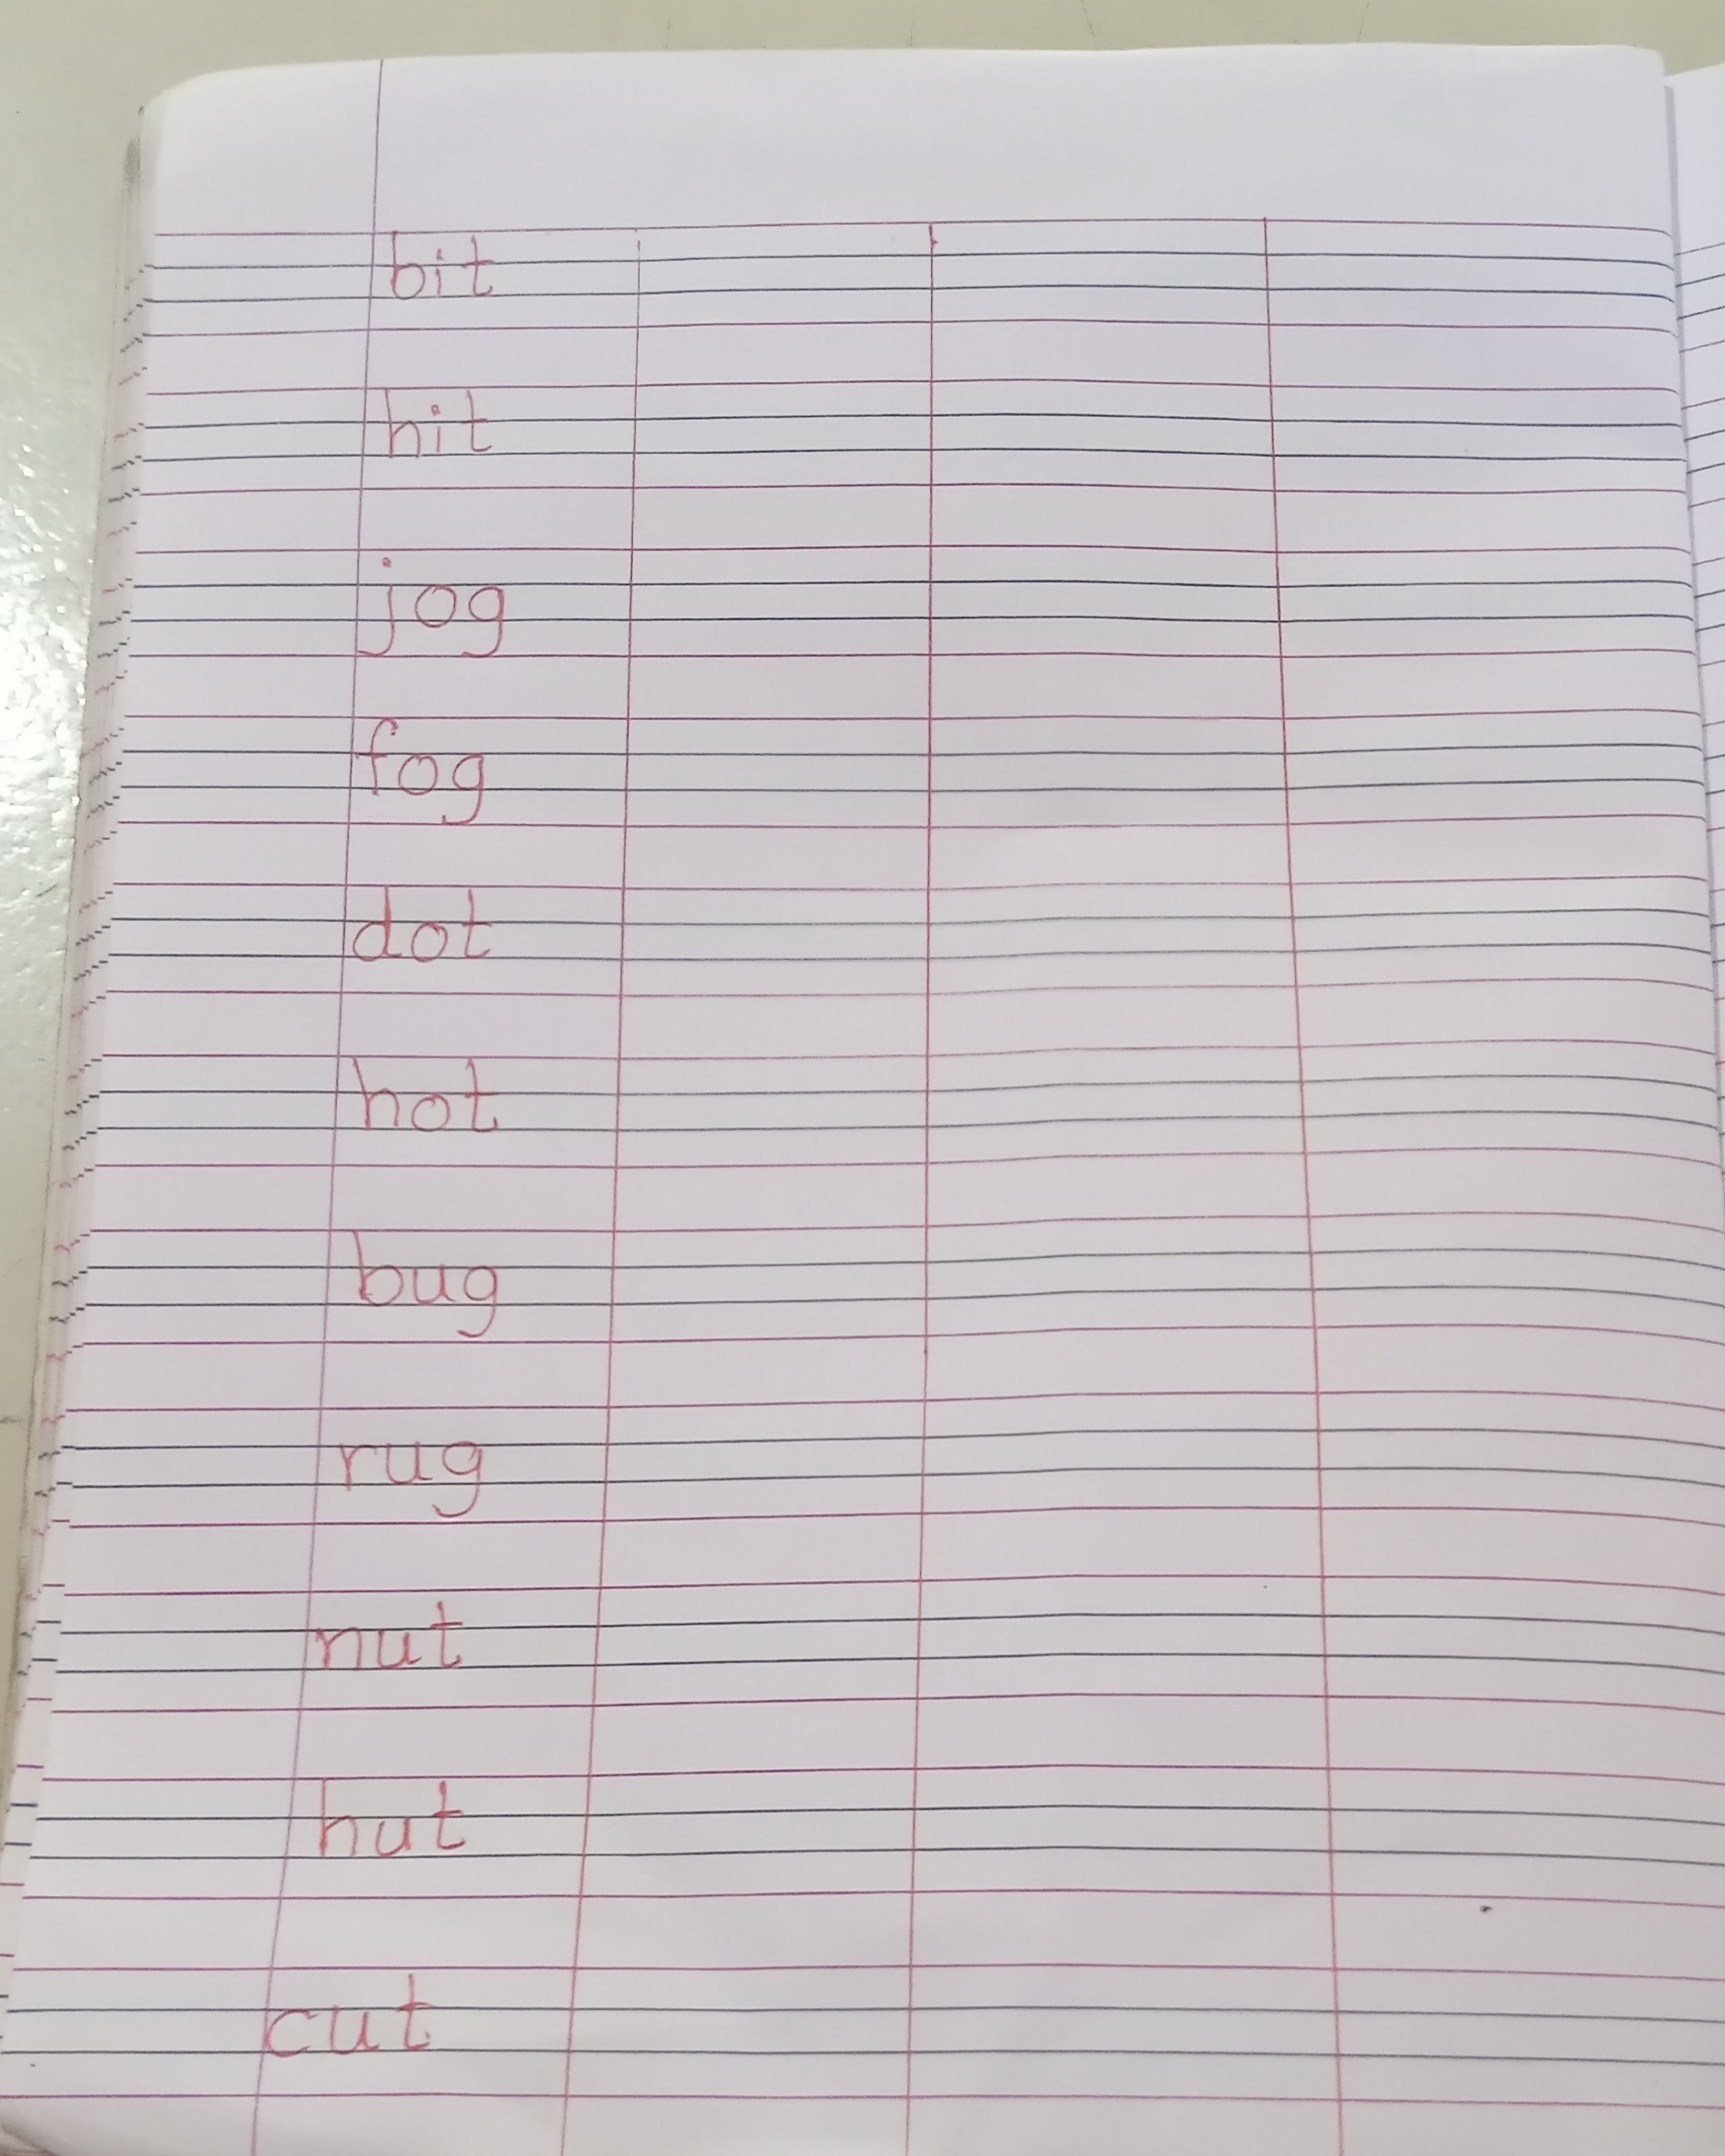 bit
hit
jog
fog
dot
hot
bug
rug
nut
hut
cut